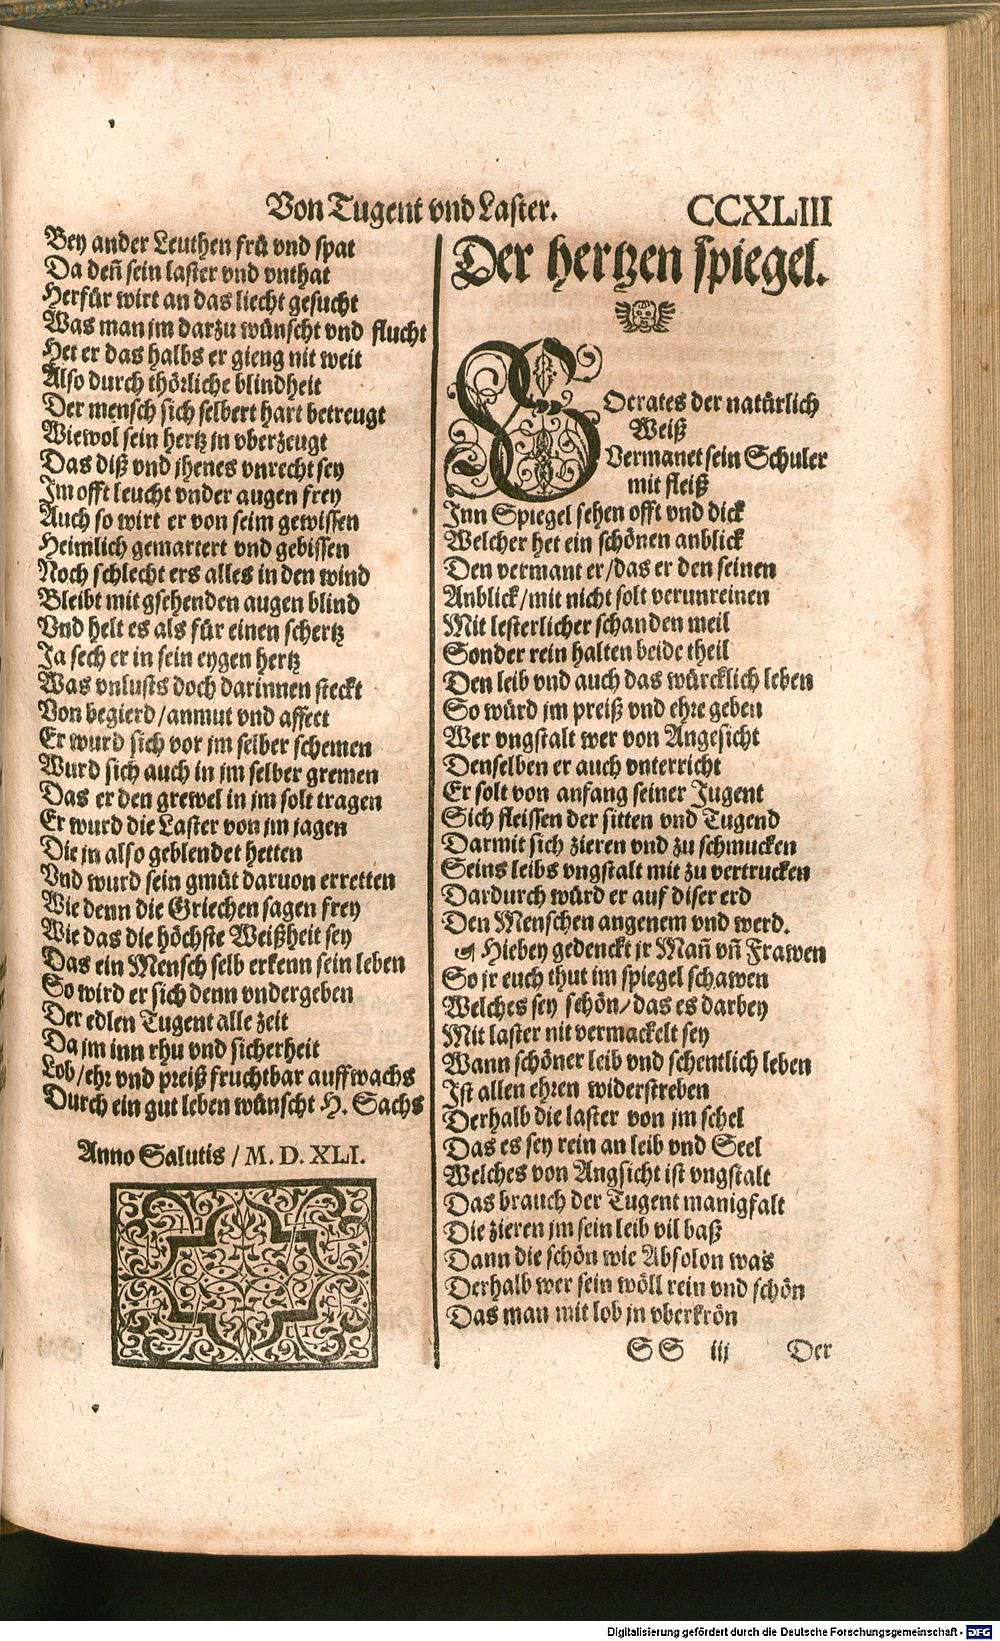 Von Tugent vnd Laster. CCXLIII
Bey ander Leuthen frü vnd spat
Da deñ sein laster vnd vnthat
Herfür wirt an das liecht gesucht
Was man jm darzu wünscht vnd flucht
Het er das halbs er gieng nit weit
Also durch thörliche blindheit
Der mensch sich selbert hart betreugt
Wiewol sein hertz jn vberzeugt
Das diß vnd jhenes vnrecht sey
Im offt leucht vnder augen frey
Auch so wirt er von seim gewissen
Heimlich gemartert vnd gebissen
Noch schlecht ers alles in den wind
Bleibt mit gsehenden augen blind
Vnd helt es als für einen schertz
Ja sech er in sein eygen hertz
Was vnlusts doch darinnen steckt
Von begierd/anmut vnd affect
Er wurd sich vor jm selber schemen
Wurd sich auch in jm selber gremen
Das er den grewel in jm solt tragen
Er wurd die Laster von jm jagen
Die jn also geblendet hetten
Vnd wurd sein gmüt daruon erretten
Wie denn die Griechen sagen frey
Wie das die höchste Weißheit sey
Das ein Mensch selb erkenn sein leben
So wird er sich denn vndergeben
Der edlen Tugent alle zeit
Da jm inn rhu vnd sicherheit
Lob/ehr vnd preiß fruchtbar auffwachs
Durch ein gut leben wünscht H. Sachs
Anno Salutis / M. D. XLI.
Der hertzen spiegel.
SOcrates der natürlich
Weiß
Vermanet sein Schuler
mit fleiß
Inn Spiegel sehen offt vnd dick
Welcher het ein schönen anblick
Den vermant er/das er den seinen
Anblick/mit nicht solt verunreinen
Mit lesterlicher schanden meil
Sonder rein halten beide theil
Den leib vnd auch das würcklich leben
So würd jm preiß vnd ehre geben
Wer vngstalt wer von Angesicht
Denselben er auch vnterricht
Er solt von anfang seiner Jugent
Sich fleissen der sitten vnd Tugend
Darmit sich zieren vnd zu schmucken
Seins leibs vngstalt mit zu vertrucken
Dardurch würd er auf diser erd
Den Menschen angenem vnd werd.
Hiebey gedenckt jr Mañ vñ Frawen
So jr euch thut im spiegel schawen
Welches sey schön/das es darbey
Mit laster nit vermackelt sey
Wann schöner leib vnd schentlich leben
Ist allen ehren widerstreben
Derhalb die laster von jm schel
Das es sey rein an leib vnd Seel
Welches von Angsicht ist vngstalt
Das brauch der Tugent manigfalt
Die zieren jm sein leib vil baß
Dann die schön wie Absolon was
Derhalb wer sein wöll rein vnd schön
Das man mit lob jn vberkrön
SS iij Der
Digitalisierung gefördert durch die Deutsche Forschungsgemeinschaft - DFG